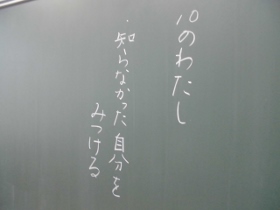 10のわたし
・知らなかった自分を
みつける